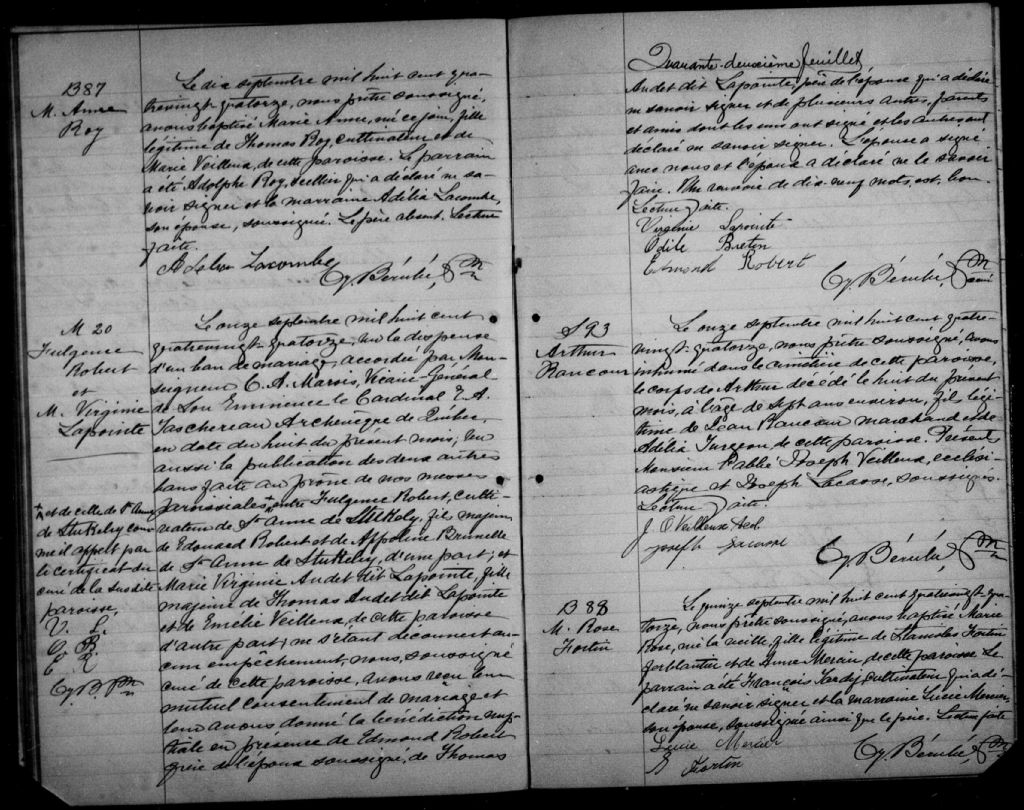 B 87
M. Anna
Roy
Le dix septembre mil huit cent qua-
trevingt-quatorze, nous prêtre soussigné,
avons baptisé Marie Anna, née ce jour, fille
légitime de Thomas Roy, cultivateur et de
Marie Veilleux, de cette paroisse. Le parrain
a été Adolphe Roy, sellier qui a déclaré ne sa-
voir signer et la marraine Adélia Lacombe,
son épouse, soussigné. Le père absent. Lecture
faite.
Lacombe
Cy. Bérubé, Ptre
M 20
Fulgence
Robert
et
M. Virginie
Lapointe
Le onze septembre mil huit cent
quatrevingt-quatorze, vu la dispense
d'un ban de mariage accordée par Mon-
seigneur C. A. Marois, Vicaire-Général
de Son Eminence le Cardinal E. A.
Taschereau Archevêque de Québec,
en date du huit du présent mois; vu
aussi la publication des deux autres
bans faite au prône de nos messes
paroissiales, entre Fulgence Robert, culti-
vateur de Ste Anne de Stukely, fils majeur
de Edouard Robert et de Appoline Brunelle
de Ste Anne de Stukely, d'une part; et
Marie Virginie Audet dit Lapointe, fille
majeure de Thomas Audet dit Lapointe
et de Emélie Veilleux, de cette paroisse
d'autre part; ne s'étant découvert au-
cun empêchement, nous, soussigné
curé de cette paroisse, avons reçu leur
mutuel consentement de mariage et
leur avons donné la bénédiction nup-
tiale en présence de Edmond Robert
frère de l'époux soussigné, de Thomas
+ et de celle de Ste Anne
de Stukely com-
me il appert par
le certificat du
curé de la susdite
paroisse,
V. L.
O. B.
E. R.
Cy. B. Ptre
Quarante-deuxième feuillet
Audet dit Lapointe, père de l'épouse qui a déclaré
ne savoir signer et de plusieurs autres, parents
et amis dont les uns ont signé et les autres ont
déclaré ne savoir signer. L'épouse a signé
avec nous et l'époux a déclaré ne le savoir
faire. Un renvoi de dix-neuf mots, est bon.
Lecture faite.
Virginie Lapointe
Odile Breton
Edmond Robert
Cy. Bérubé, Ptre
curé
S 93
Arthur
Rancour
Le onze septembre mil huit cent quatre-
vingt-quatorze, nous prêtre soussigné, avons
inhumé dans le cimetière de cette paroisse,
le corps de Arthur décédé le huit du présent
mois, à l'âge de sept ans environ, fils légi-
time de Jean Rancour marchand et de
Adélia Turgeon de cette paroisse. Présents
Monsieur l'abbé Joseph Veilleux, ecclési-
astique et Joseph Lacasse, soussignés.
Lecture faite.
J. O Veilleux Accl.
Joseph Lacasse
Cy. Bérubé, Ptre
B 88
M. Rose
Fortin
Le quinze septembre mil huit cent quatrevingt-qua-
torze, nous prêtre soussigné, avons baptisé Marie
Rose, née la veille, fille légitime de Stanislas Fortin
ferblantier et de Anna Mercier, de cette paroisse. Le
parrain a été François Tardif, cultivateur qui a dé-
claré ne savoir signer et la marraine Lucie Mercier,
son épouse, soussignée ainsi que le père. Lecture faite
Lucie Mercier
S Fortin
Cy. Bérubé, Ptre